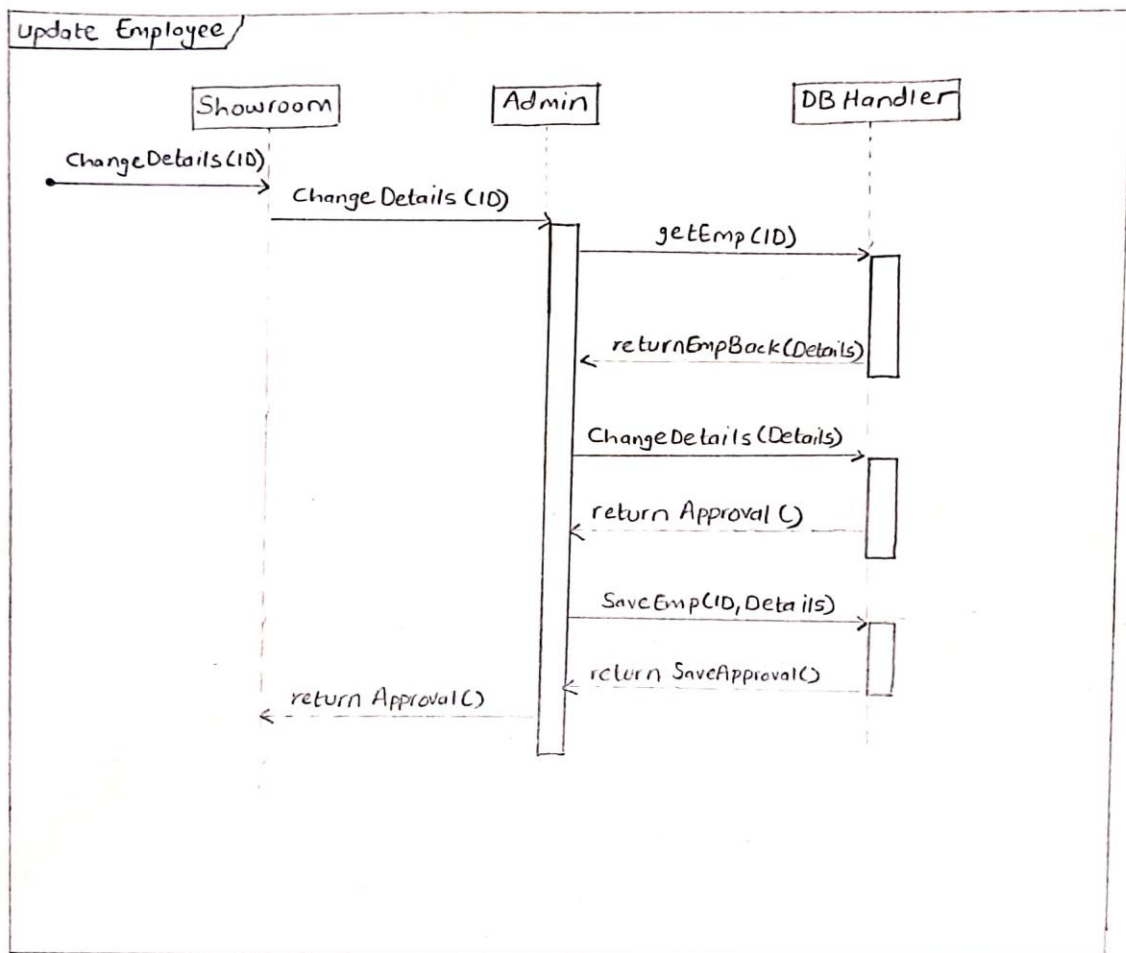 update Employee
Showroom
Admin
DB Handler
ChangeDetails(ID)
Change Details (ID)
getEmp(ID)
returnEmpBack(Details)
ChangeDetails (Details)
return Approval ()
SaveEmp(ID, Details)
return SaveApproval()
return Approval()